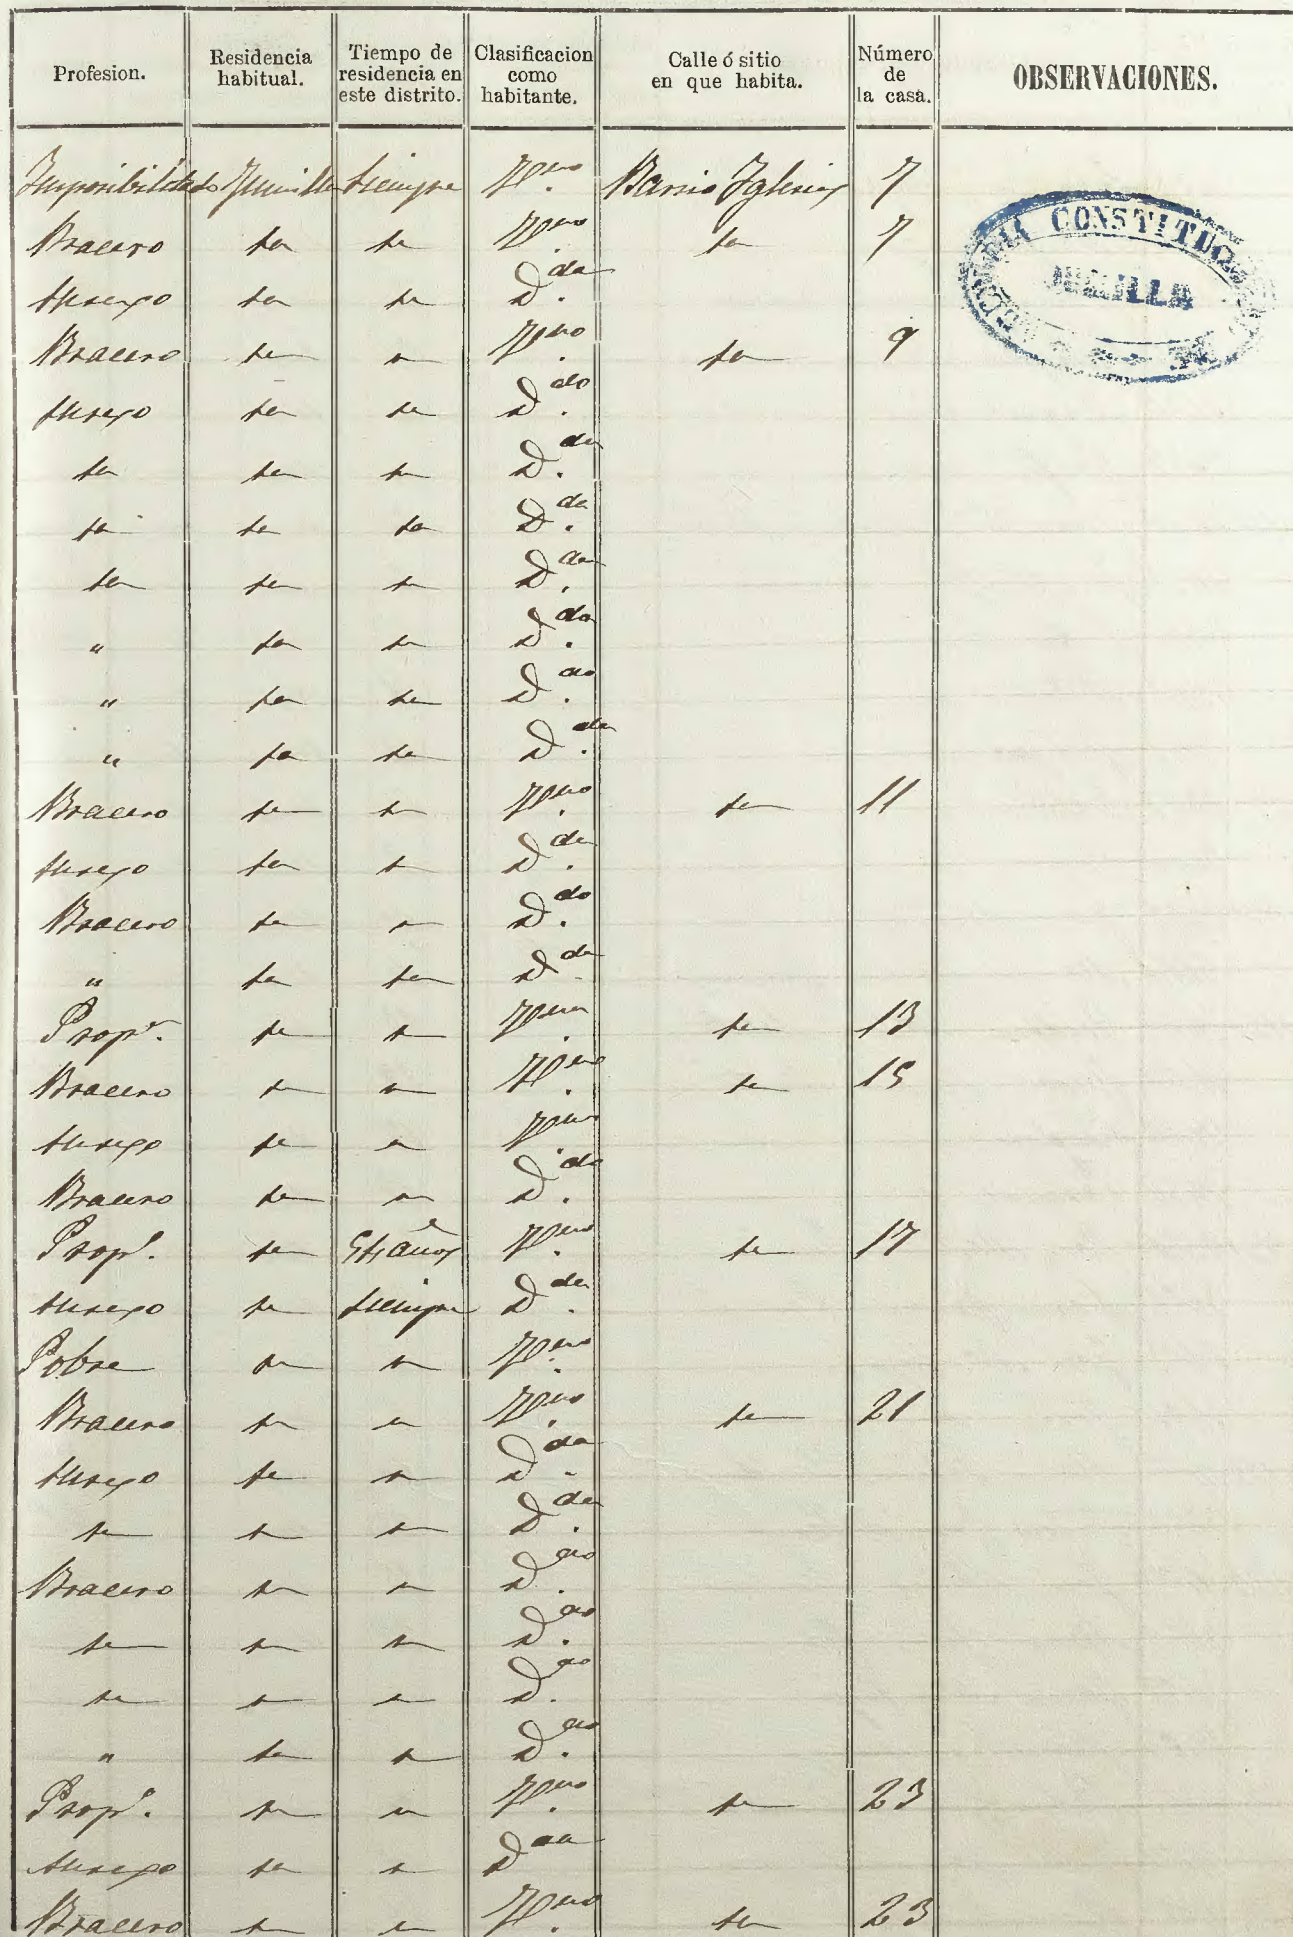 Profesion. Residencia habitual. Tiempo de residencia en este distrito. Clasificacion como habitante. Calle ó sitio en que habita. Número de la casa. OBSERVACIONES.
Imposibilitado Jumilla Siempre Vno Barrio Iglesias 7
Bracero id id Vno id 7
su sexo id id Dda
Bracero id id Vno id 9
su sexo id id Ddo
id id id Dda
id id id Dda
id id id Dda
" id id Dda
" id id Ddo
" id id Dda
Bracero id id Vno id 11
su sexo id id Dda
Bracero id id Ddo
" id id Dda
Propº. id id Vna id 13
Bracero id id Vno id 15
su sexo id id Vno
Bracero id id Ddo
Propº. id años Vno id 17
su sexo id Siempre Dda
Pobre id id Vno
Bracero id id Vno id 21
su sexo id id Dda
id id id Dda
Bracero id id Ddo
id id id Ddo
id id id Ddo
" id id Ddo
Propº. id id Vno id 23
su sexo id id Dda
Bracero id id Vno id 23
ALCALDIA CONSTITUCIONAL
JUMILLA